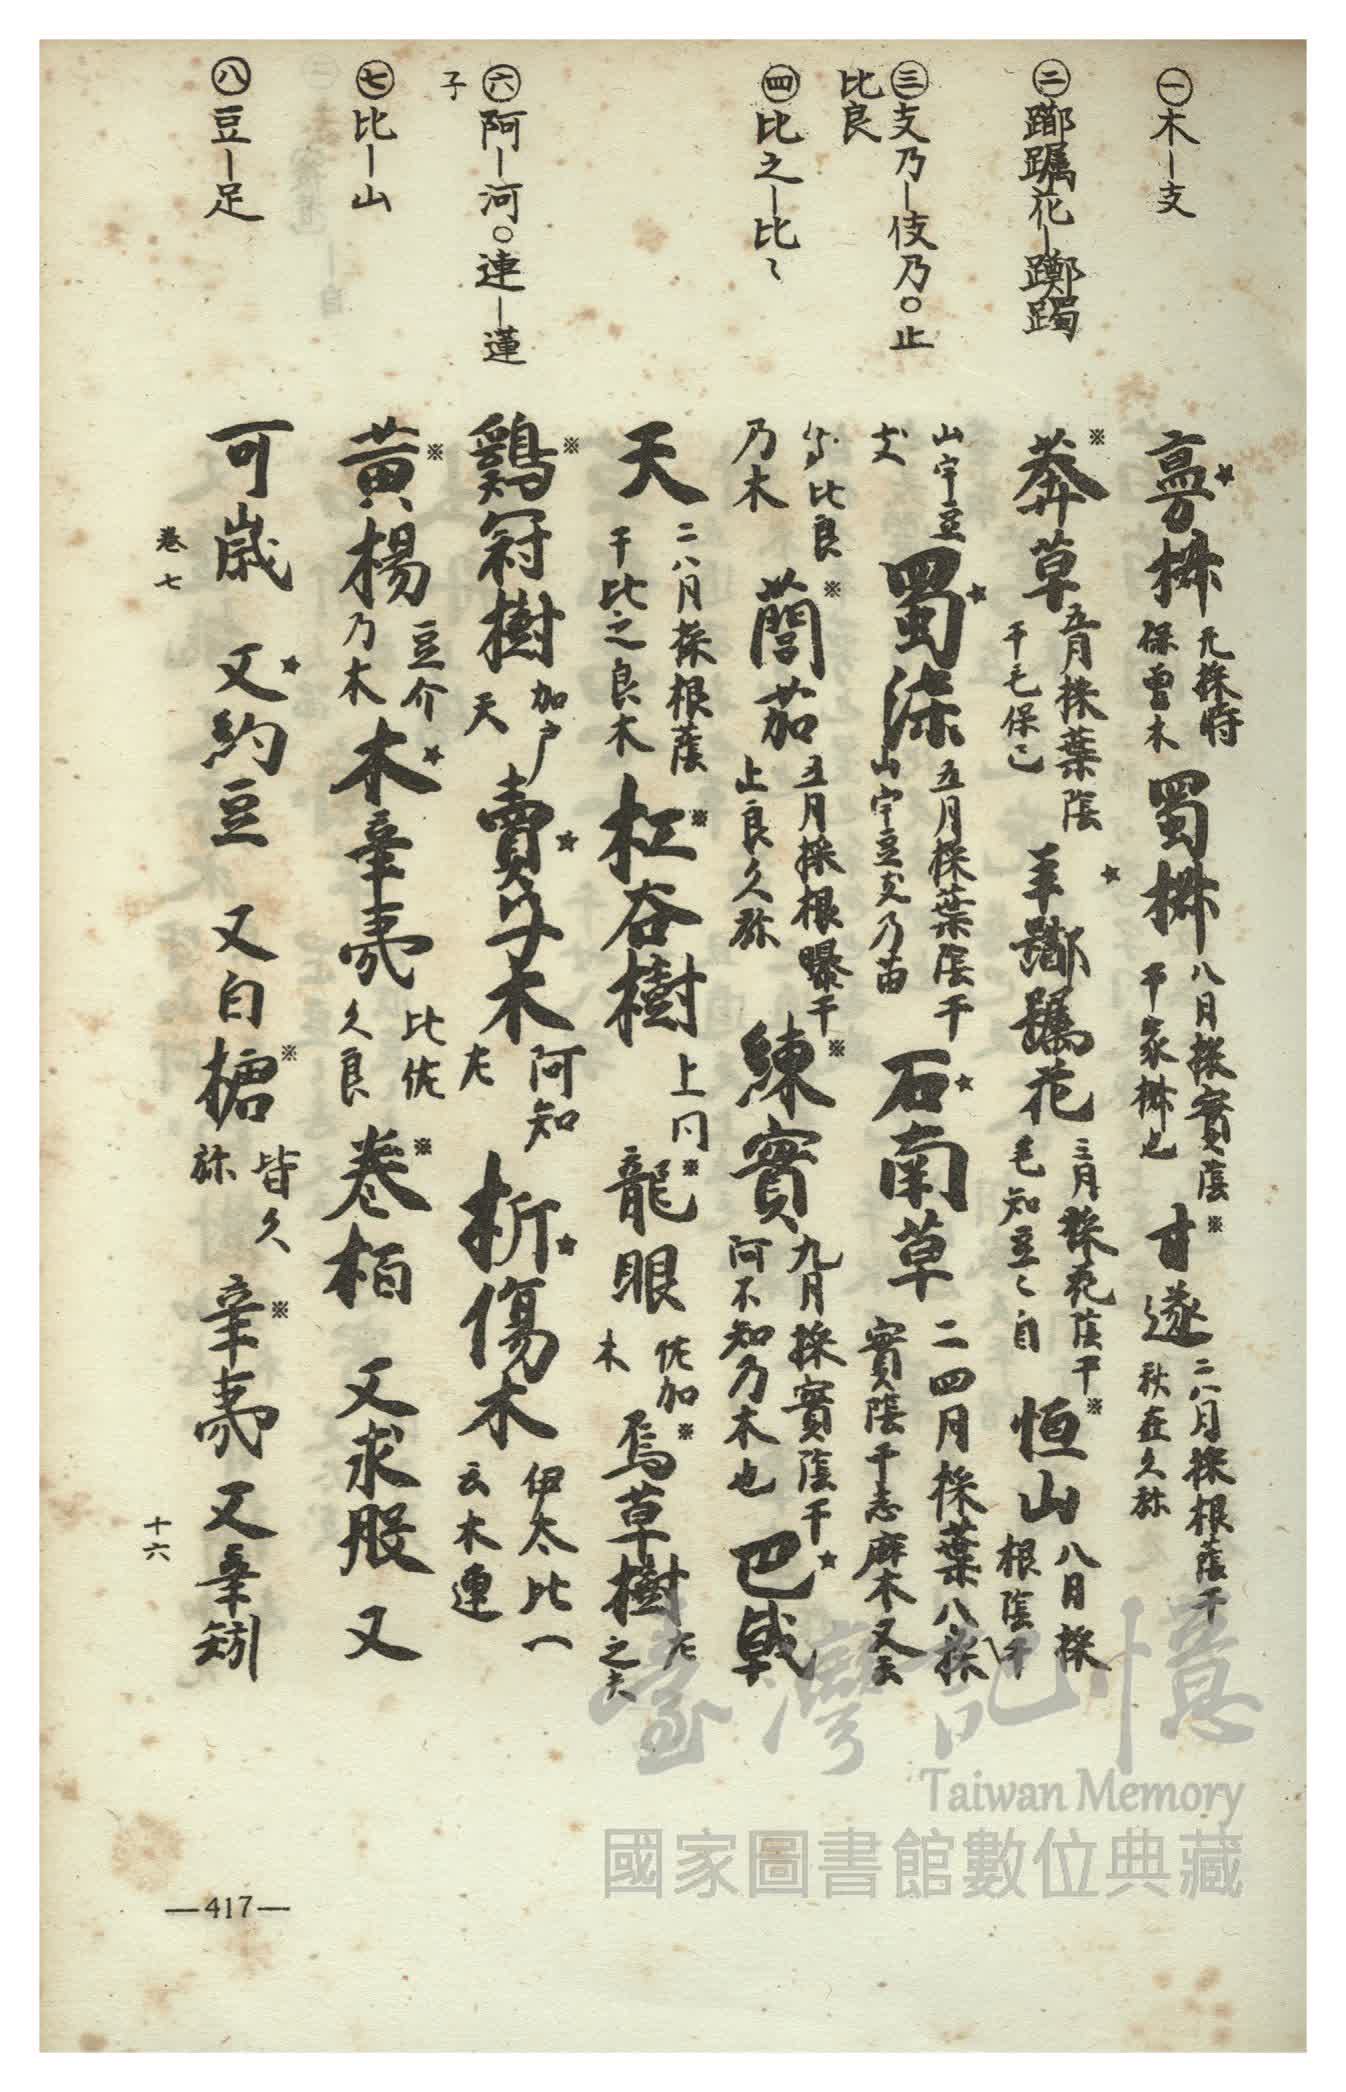 ㊀木—支
㊁躑躅花—躑躅
㊂支乃—伎乃○止
比良
㊃比之—比〻
㊅阿—河○連—蓮
子
㊆比—山
㊇豆—足
蔓椒 元採時 保曽木 蜀椒 八月採實蔭 干家椒也 甘遂 二八月採根蔭干 秋在久弥
莽草 五月株葉蔭 干毛保己 羊躑躅花 三月採花蔭干 毛知豆〻自 恒山 八月採 根蔭干
山宇豆 支 蜀漆 五月採葉蔭干 山宇豆支乃苗 石南草 二四月採葉八採 實蔭干志麻木又云
比良 乃木 藺茹 五月採根曝干 止良久弥 練實 九月採實蔭干 阿不知乃木也 巴戟
天 二八月採根蔭 干比之良木 杠谷樹 上同 龍眼 佐加 木 烏草樹 左 之夫
鷄冠樹 加戸 天 賣子木 阿知 左 折傷木 伊太比一 云木連
黄楊 豆介 乃木 木辛夷 比佐 久良 卷栢 又求股 又
可歲 又約豆 又白㯭 皆久 弥 辛夷 又辛矧
卷七
十六
—417—
臺灣記憶
Taiwan Memory
國家圖書館數位典藏